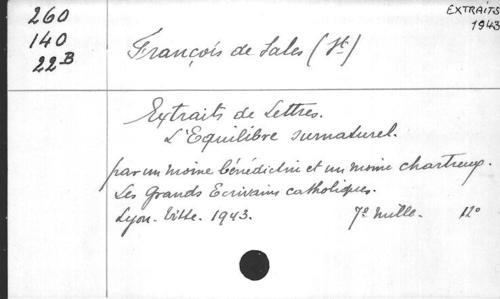 260
140
22B
EXTRAITS
1943
François de Sales (St)
Extraits de Lettres.
L'Equilibre surnaturel.
par un moine bénédictin et un moine chartreux.
Les Grands Ecrivains catholiques.
Lyon. Vitte. 1943. 7e mille. 12o